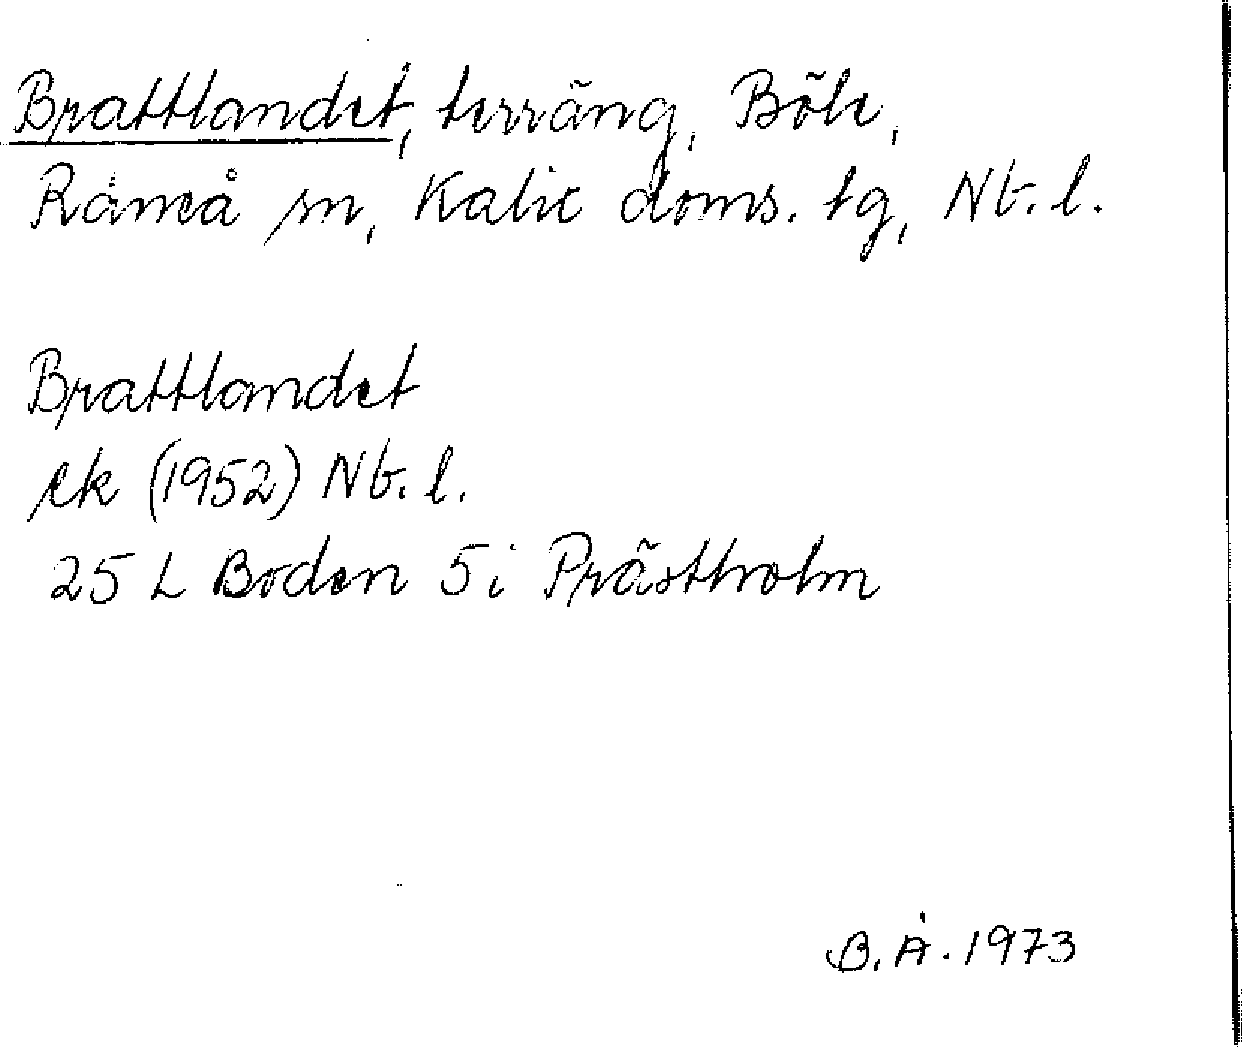 Brattlandet, terräng, Böle,
Råneå sn, Kalix doms. tg, Nb. l.
Brattlandet
ek (1952) Nb. l.
25 L Boden 5 i Prästholm
B. Å. 1973